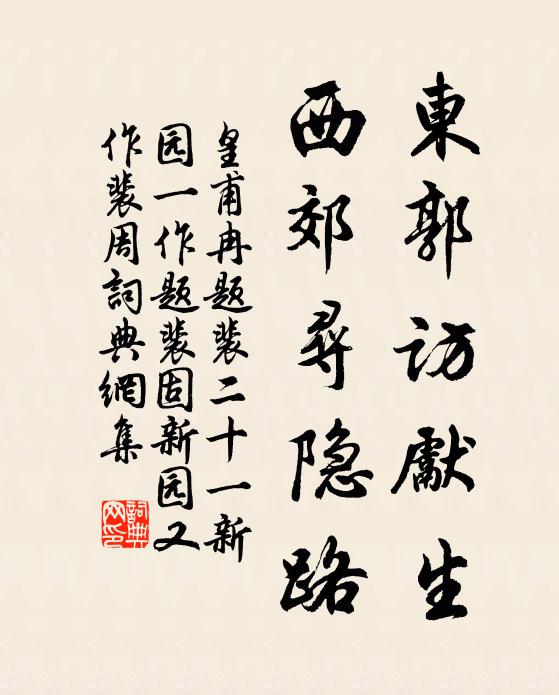 東郭訪獻生
西郊尋隐路
皇甫冉題裴二十一新
园一作題裴固新园又
作裴周詞典網集
詞典
网印